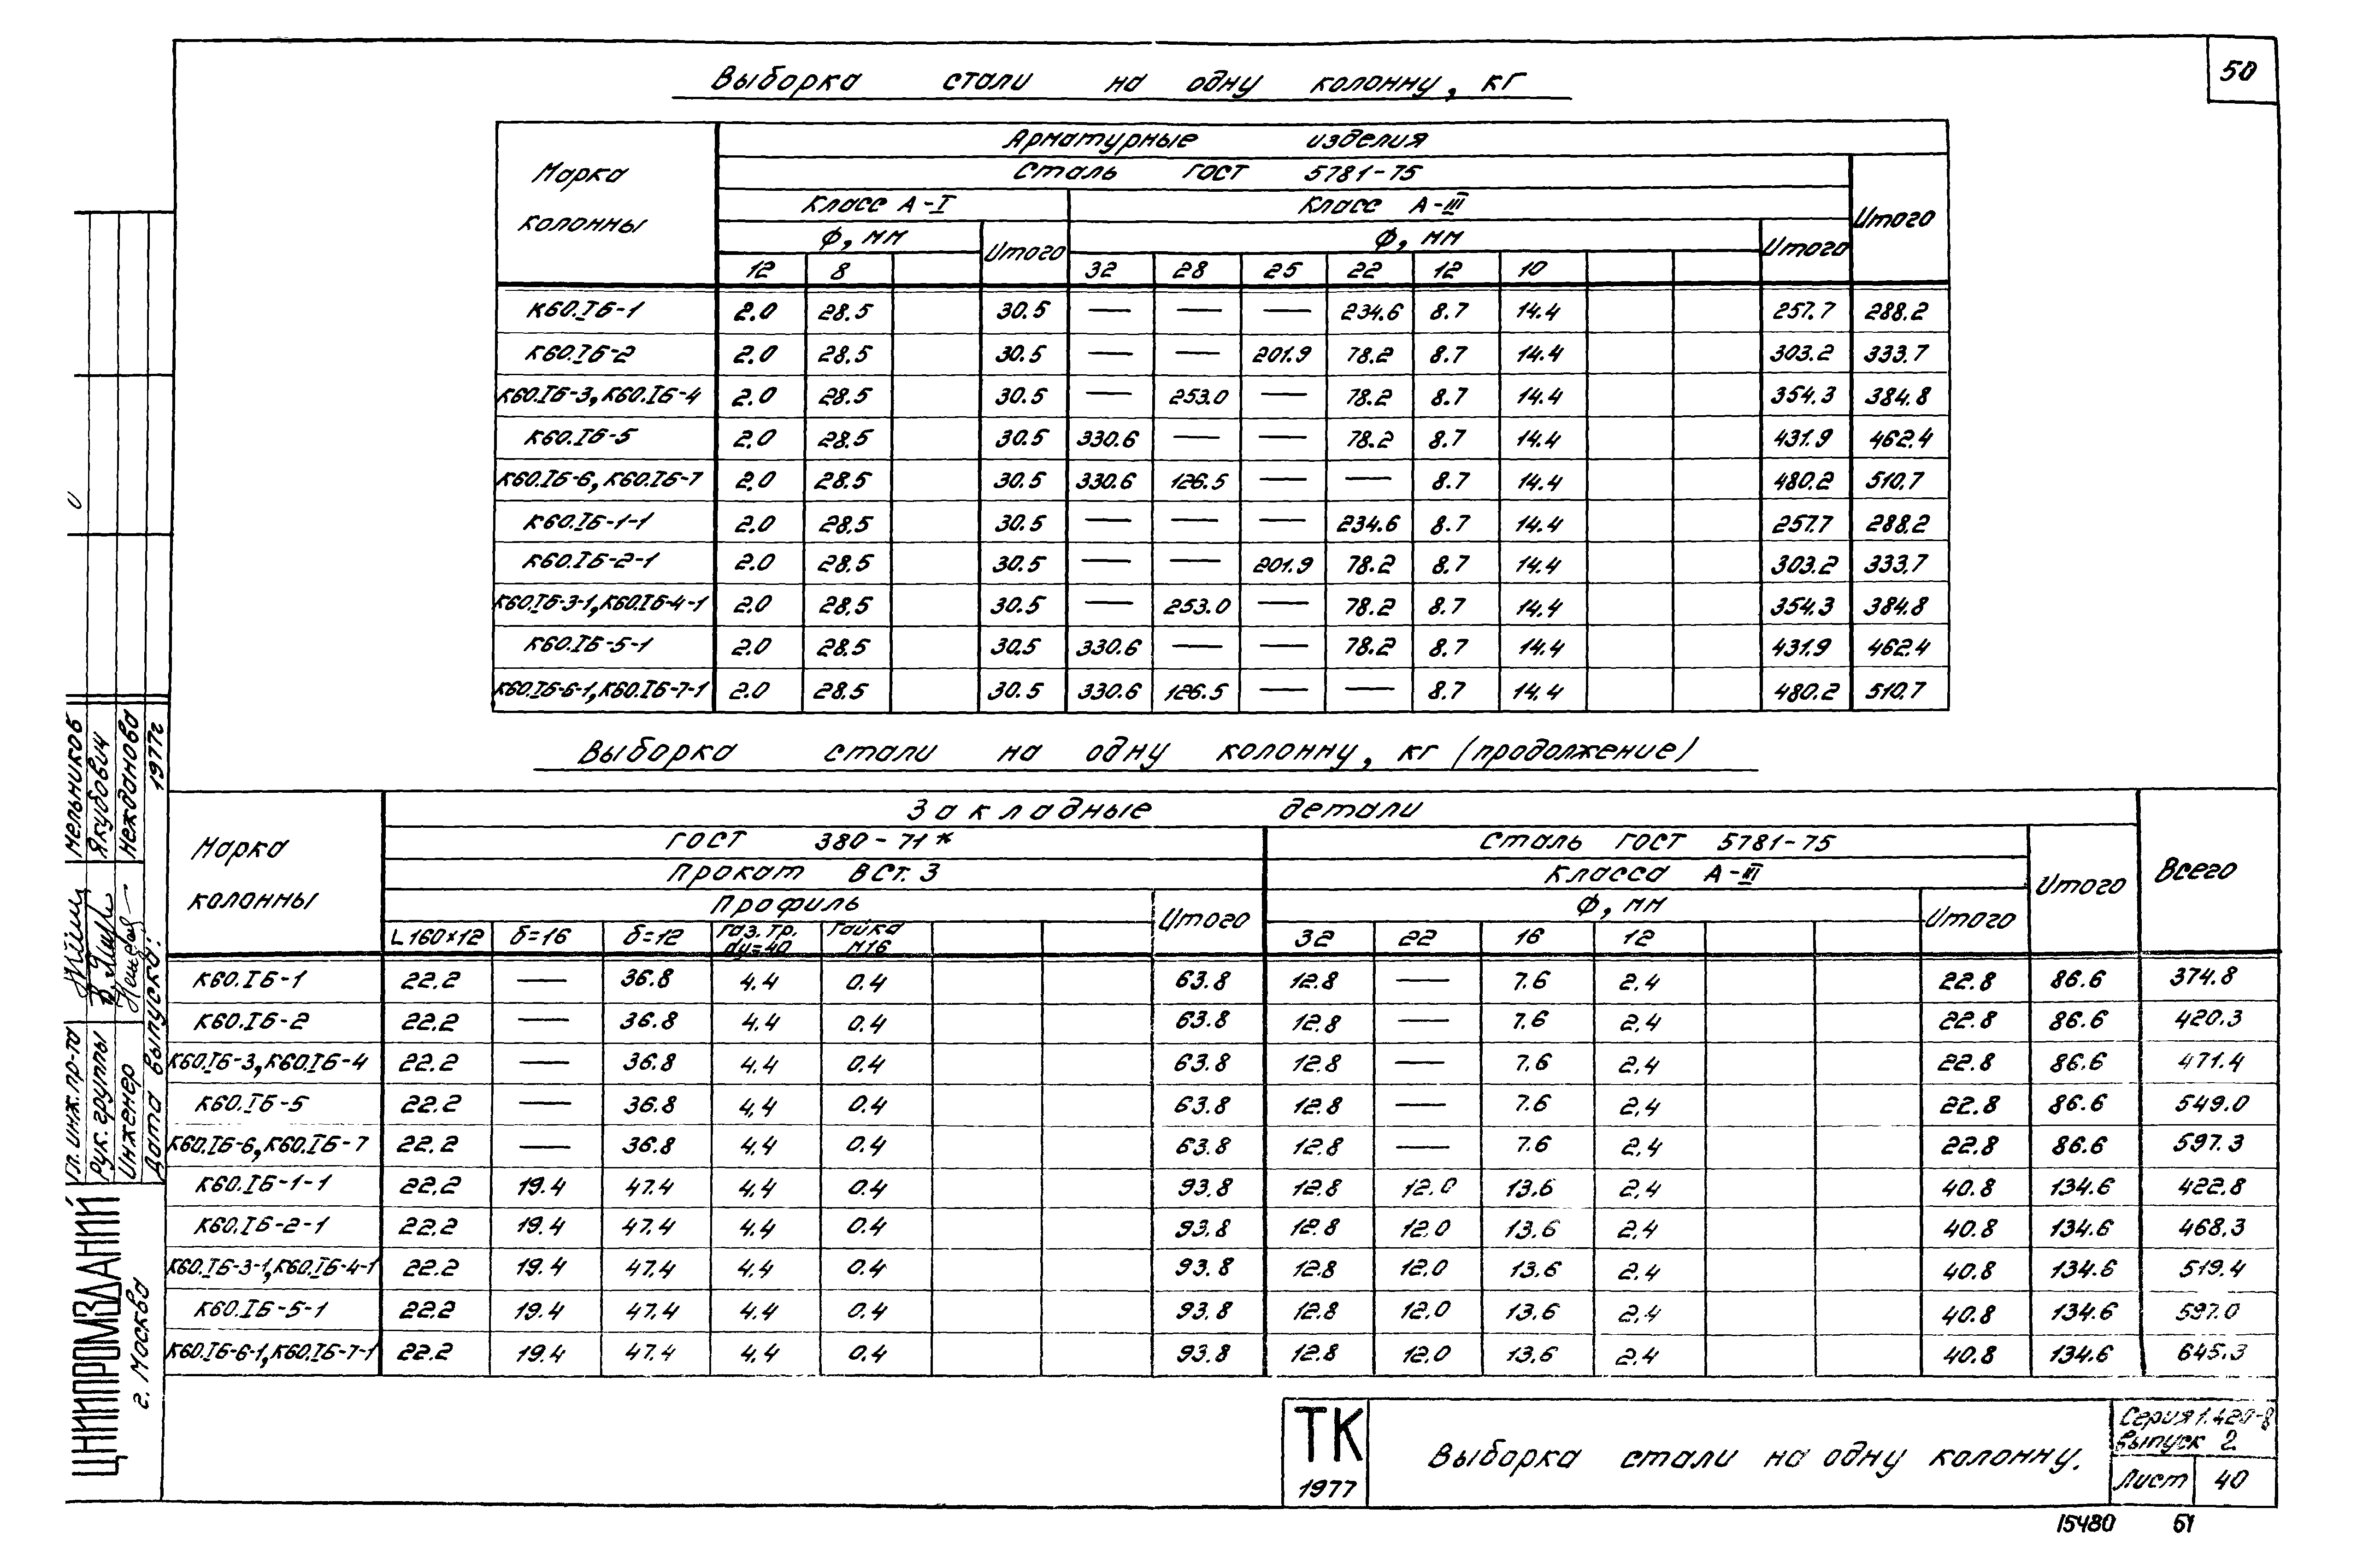 50
Выборка стали на одну колонну, кг
Марка колонны
Арматурные изделия
Сталь ГОСТ 5781-75
Итого
Класс А-I Класс А-III
Ф, мм Итого Ф, мм Итого
12 8 32 28 25 22 12 10
К60.IБ-1 2.0 28.5 30.5 — — — 234.6 8.7 14.4 257.7 288.2
К60.IБ-2 2.0 28.5 30.5 — — 201.9 78.2 8.7 14.4 303.2 333.7
К60.IБ-3, К60.IБ-4 2.0 28.5 30.5 — 253.0 — 78.2 8.7 14.4 354.3 384.8
К60.IБ-5 2.0 28.5 30.5 330.6 — — 78.2 8.7 14.4 431.9 462.4
К60.IБ-6, К60.IБ-7 2.0 28.5 30.5 330.6 126.5 — — 8.7 14.4 480.2 510.7
К60.IБ-1-1 2.0 28.5 30.5 — — — 234.6 8.7 14.4 257.7 288.2
К60.IБ-2-1 2.0 28.5 30.5 — — 201.9 78.2 8.7 14.4 303.2 333.7
К60.IБ-3-1, К60.IБ-4-1 2.0 28.5 30.5 — 253.0 — 78.2 8.7 14.4 354.3 384.8
К60.IБ-5-1 2.0 28.5 30.5 330.6 — — 78.2 8.7 14.4 431.9 462.4
К60.IБ-6-1, К60.IБ-7-1 2.0 28.5 30.5 330.6 126.5 — — 8.7 14.4 480.2 510.7
Выборка стали на одну колонну, кг (продолжение)
Марка колонны
Закладные детали
Всего
ГОСТ 380-71* Сталь ГОСТ 5781-75 Итого
Прокат ВСт.3 Класса А-III
Профиль Итого Ф, мм Итого
L160×12 δ=16 δ=12 Газ. тр. dу=40 Гайка М16 32 22 16 12
К60.IБ-1 22.2 — 36.8 4.4 0.4 63.8 12.8 — 7.6 2.4 22.8 86.6 374.8
К60.IБ-2 22.2 — 36.8 4.4 0.4 63.8 12.8 — 7.6 2.4 22.8 86.6 420.3
К60.IБ-3, К60.IБ-4 22.2 — 36.8 4.4 0.4 63.8 12.8 — 7.6 2.4 22.8 86.6 471.4
К60.IБ-5 22.2 — 36.8 4.4 0.4 63.8 12.8 — 7.6 2.4 22.8 86.6 549.0
К60.IБ-6, К60.IБ-7 22.2 — 36.8 4.4 0.4 63.8 12.8 — 7.6 2.4 22.8 86.6 597.3
К60.IБ-1-1 22.2 19.4 47.4 4.4 0.4 93.8 12.8 12.0 13.6 2.4 40.8 134.6 422.8
К60.IБ-2-1 22.2 19.4 47.4 4.4 0.4 93.8 12.8 12.0 13.6 2.4 40.8 134.6 468.3
К60.IБ-3-1, К60.IБ-4-1 22.2 19.4 47.4 4.4 0.4 93.8 12.8 12.0 13.6 2.4 40.8 134.6 519.4
К60.IБ-5-1 22.2 19.4 47.4 4.4 0.4 93.8 12.8 12.0 13.6 2.4 40.8 134.6 597.0
К60.IБ-6-1, К60.IБ-7-1 22.2 19.4 47.4 4.4 0.4 93.8 12.8 12.0 13.6 2.4 40.8 134.6 645.3
Гл. инж. пр-та Мельников
Рук. группы Якубович
Инженер Нежданова
Дата выпуска: 1977г
ЦНИИПРОМЗДАНИЙ
г. Москва
ТК
1977
Выборка стали на одну колонну.
Серия 1.420-8
Выпуск 2
Лист 40
15480 51